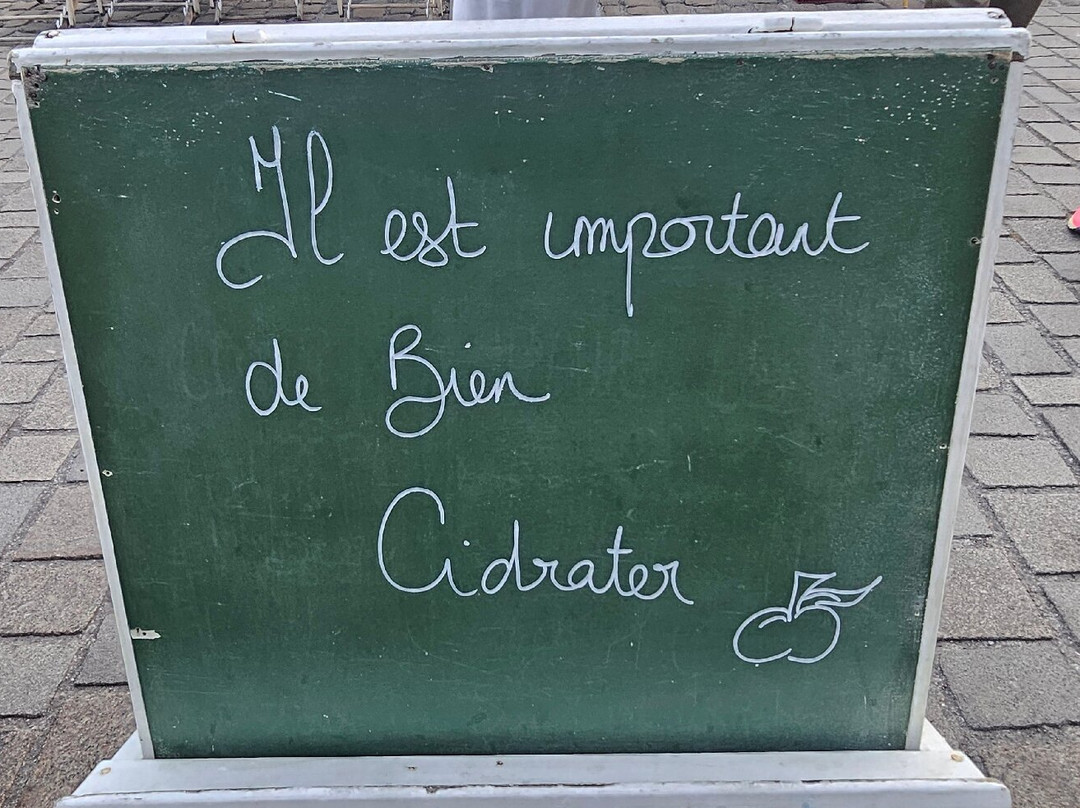 Il est important
de Bien
Cidrater